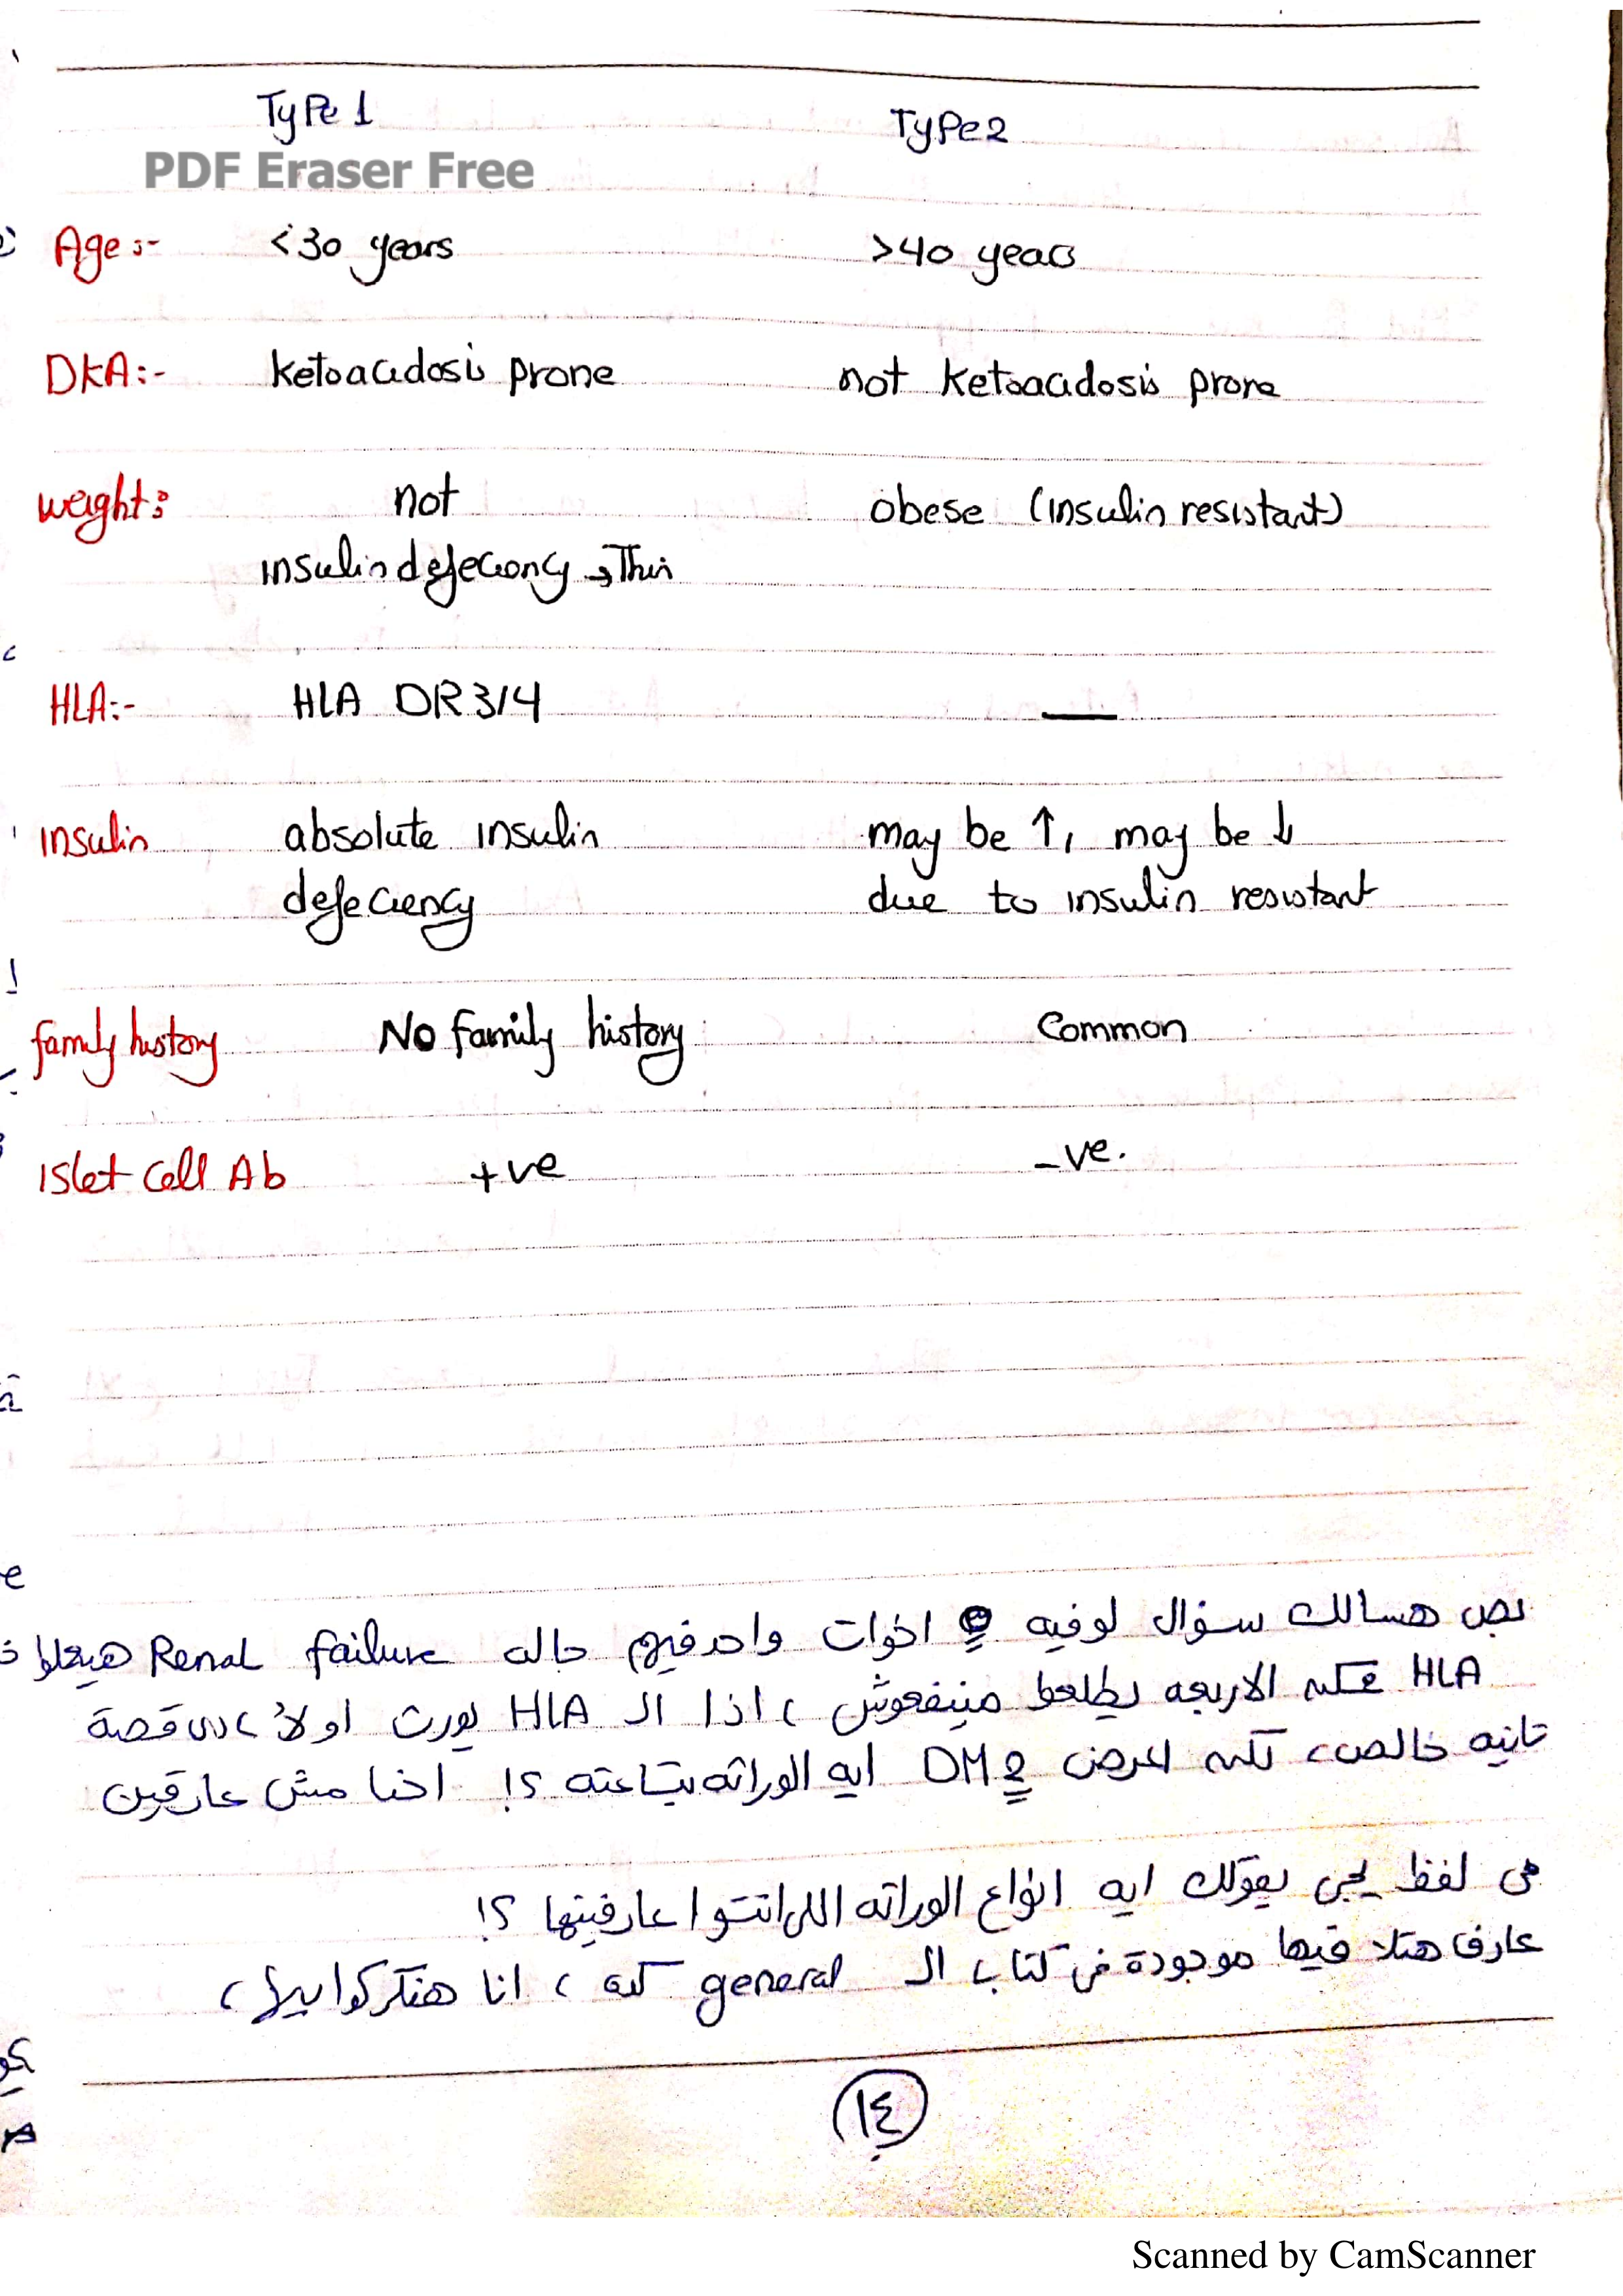 Type 1 Type 2
PDF Eraser Free
Age :- <30 years >40 years
DKA :- Ketoacidosis prone not Ketoacidosis prone
weight: not obese (insulin resistant)
insulin defeciency → Thin
HLA :- HLA DR 3/4 —
insulin absolute insulin may be ↑, may be ↓
defeciency due to insulin resistant
family history No family history Common
islet Cell Ab +ve -ve.
بص هسالك سؤال لو فيه اخوات واحد فيهم حاله Renal failure هيعملوا
HLA ممكن الاربعه يطلعوا مينفعوش ، اذا الـ HLA يورث اولاً ، دى قصة
تانيه خالص ، لكن المرض DM 2 ايه الوراثه بتاعته ؟! احنا مش عارفين
يجى يقولك ايه انواع الوراثه اللى انتوا عارفينها ؟!
عارف هتلاقيها موجودة فى كتاب الـ general كده ، انا هفتكركوا بيها ،
١٤
Scanned by CamScanner